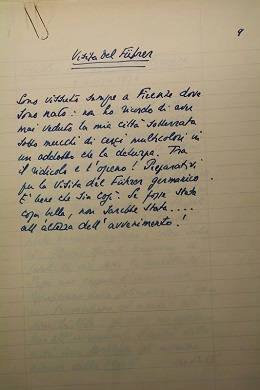 9
Visita del Führer
Sono vissuto sempre a Firenze dove
sono nato: non ho ricordo di aver
mai veduto la mia città sotterrata
sotto mucchi di cenci multicolori in
un addobbo che la deturpa. Tra
il ridicolo e l'osceno! Preparativi
per la Visita del Führer germanico.
E' bene che sia così. Se fosse stata
cosa bella, non sarebbe stata....
all'altezza dell'avvenimento!